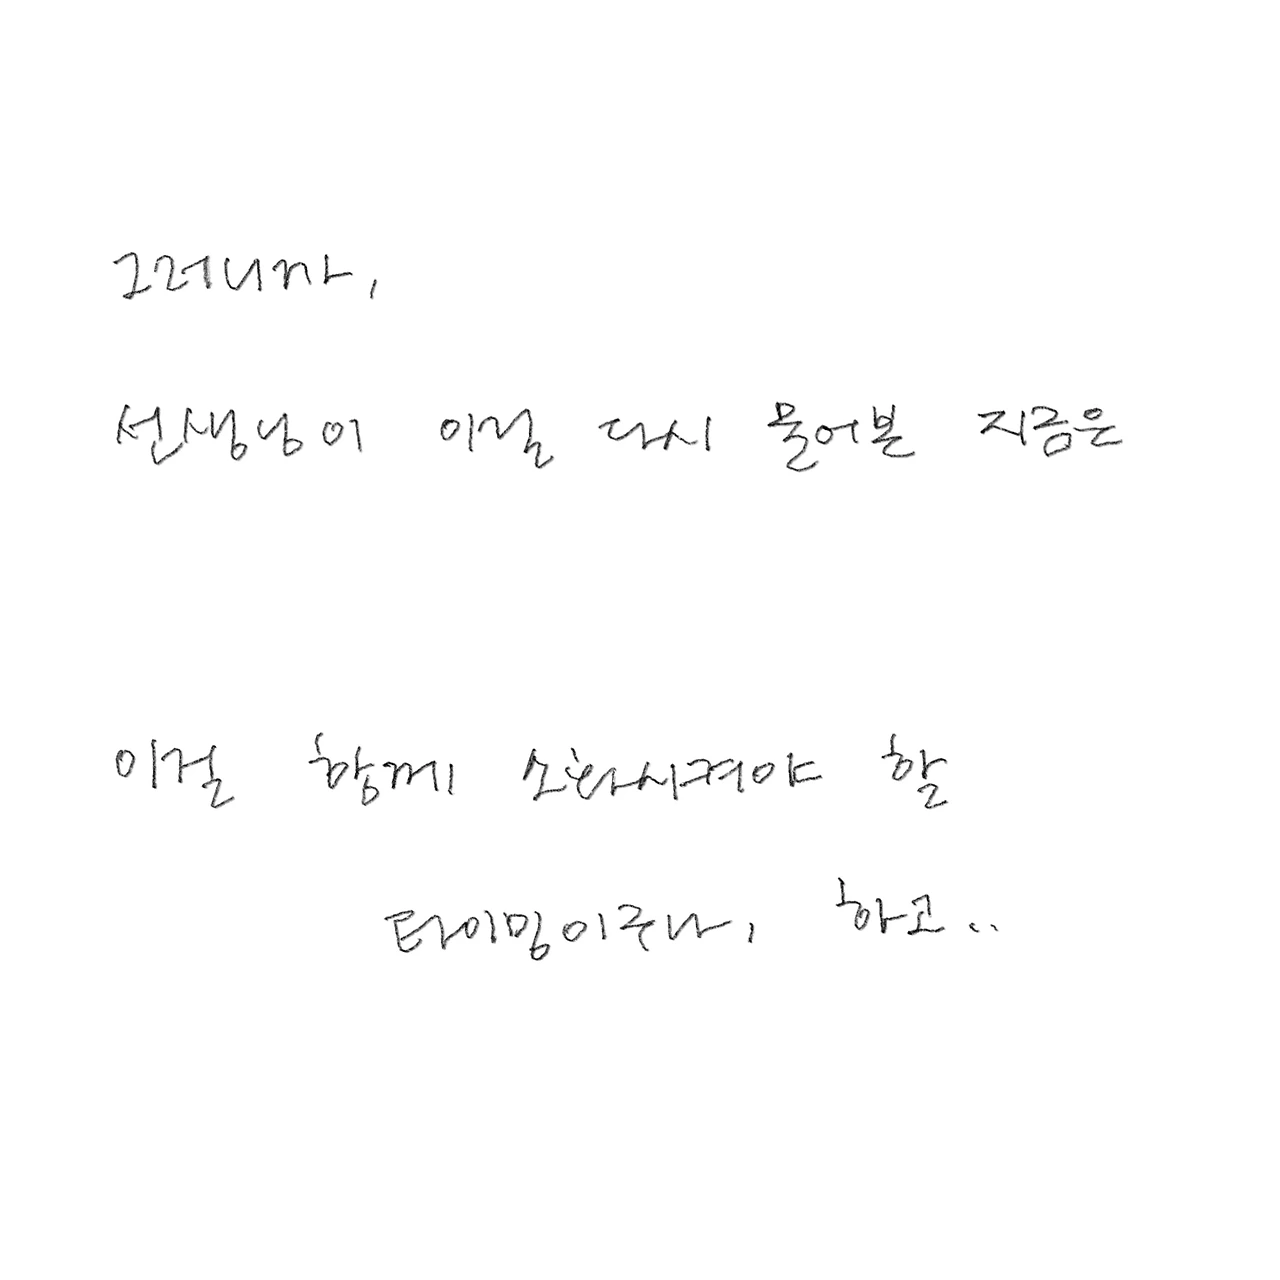 그러니까,
선생님이 이걸 다시 물어본 지금은
이걸 함께 소화시켜야 할
타이밍이구나, 하고..